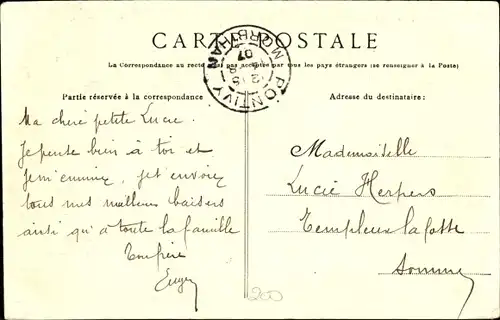 CARTE POSTALE
La Correspondance au recto n'est pas acceptée par tous les pays étrangers (se renseigner à la Poste)
PONTIVY
MORBIHAN
07
Partie réservée à la correspondance
Adresse du destinataire:
Ma chere petite Lucie
Je pense bien à toi et
Je m'ennuie, je t'envoie
tous mes meilleurs baisers
ainsi qu'à toute la famille
Ton frère
Mademoiselle
Lucie Herpers
Templeux lafosse
Somme
200